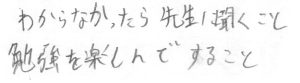 わからなかったら先生に聞くこと
勉強を楽しんですること